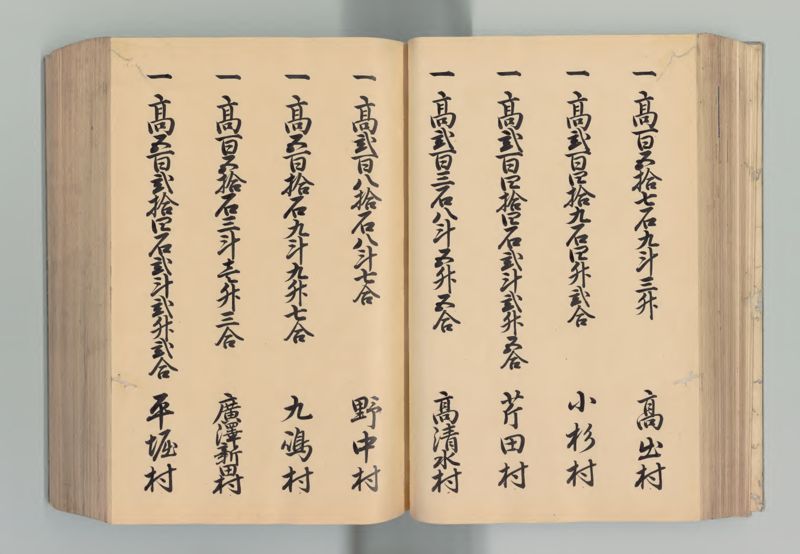 一 髙百五拾七石九斗三升 髙出村
一 髙弐百四拾九石四升弐合 小杉村
一 髙弐百四拾四石弐斗弐升五合 芹田村
一 髙弐百三石八斗五升五合 髙清水村
一 髙弐百八拾石八斗七合 野中村
一 髙五百拾石九斗九升七合 九嶋村
一 髙百五拾石三斗壱升三合 廣澤新田村
一 髙五百弐拾四石弐斗弐升弐合 平堀村